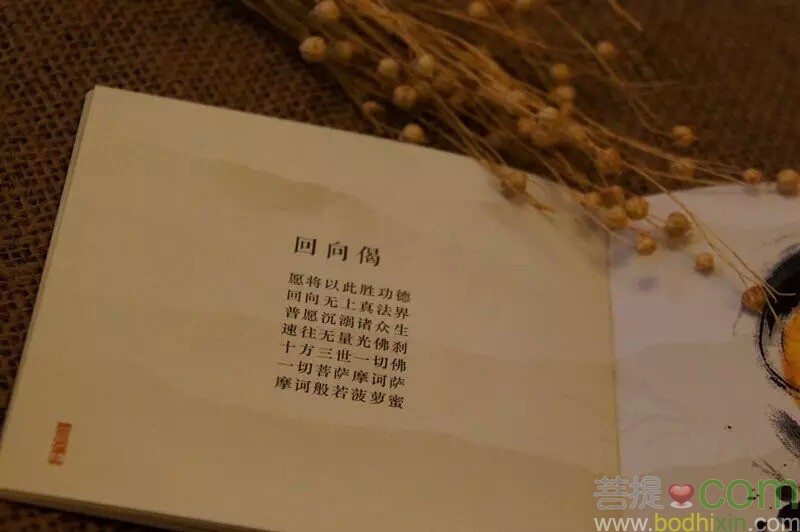 回向偈
愿将以此胜功德
回向无上真法界
普愿沉溺诸众生
速往无量光佛刹
十方三世一切佛
一切菩萨摩诃萨
摩诃般若菠萝蜜
菩提com
www.bodhixin.com